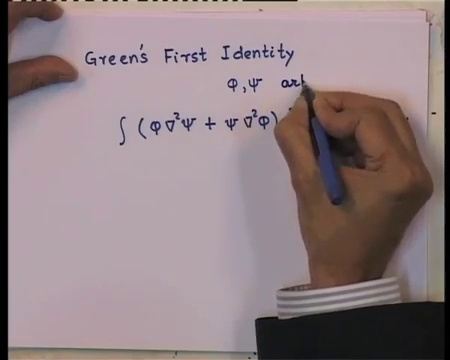 Green's First Identity
Φ, Ψ arb
∫ (Φ ∇²Ψ + Ψ ∇²Φ)